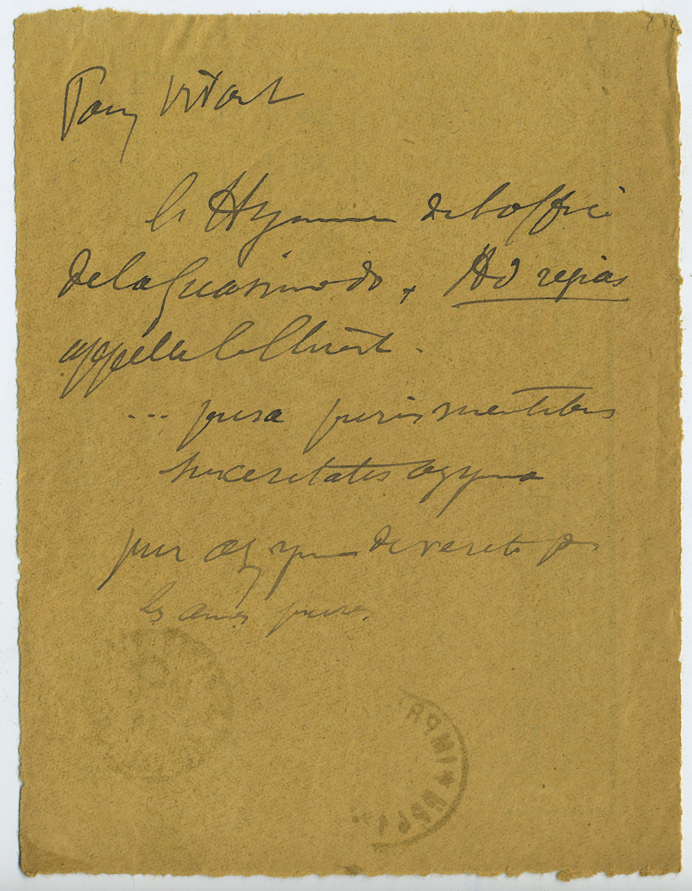 Pour Vitart
la Hymne de l'office
de la Quasimodo, Ad regias
appelle le Christ.
... pura puris mentibus
sinceritatis azyma
pur azyme de verité pr
les âmes pures